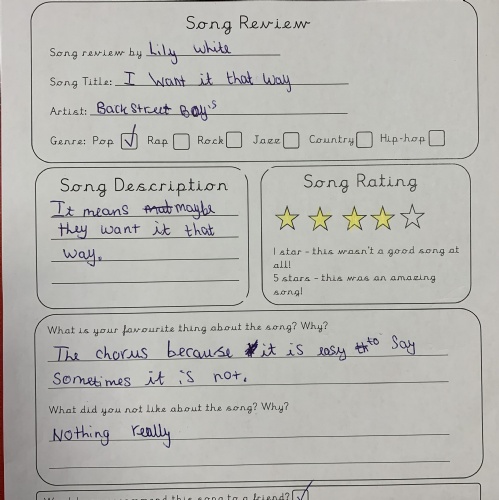 Song Review
Song review by Lily White
Song Title: I Want it that way
Artist: Backstreet Boy's
Genre: Pop Rap Rock Jazz Country Hip-hop
Song Description
It means maybe
they want it that
way.
Song Rating
1 star - this wasn't a good song at
all!
5 stars - this was an amazing
song!
What is your favourite thing about the song? Why?
The chorus because it is easy to say
Sometimes it is not.
What did you not like about the song? Why?
Nothing really